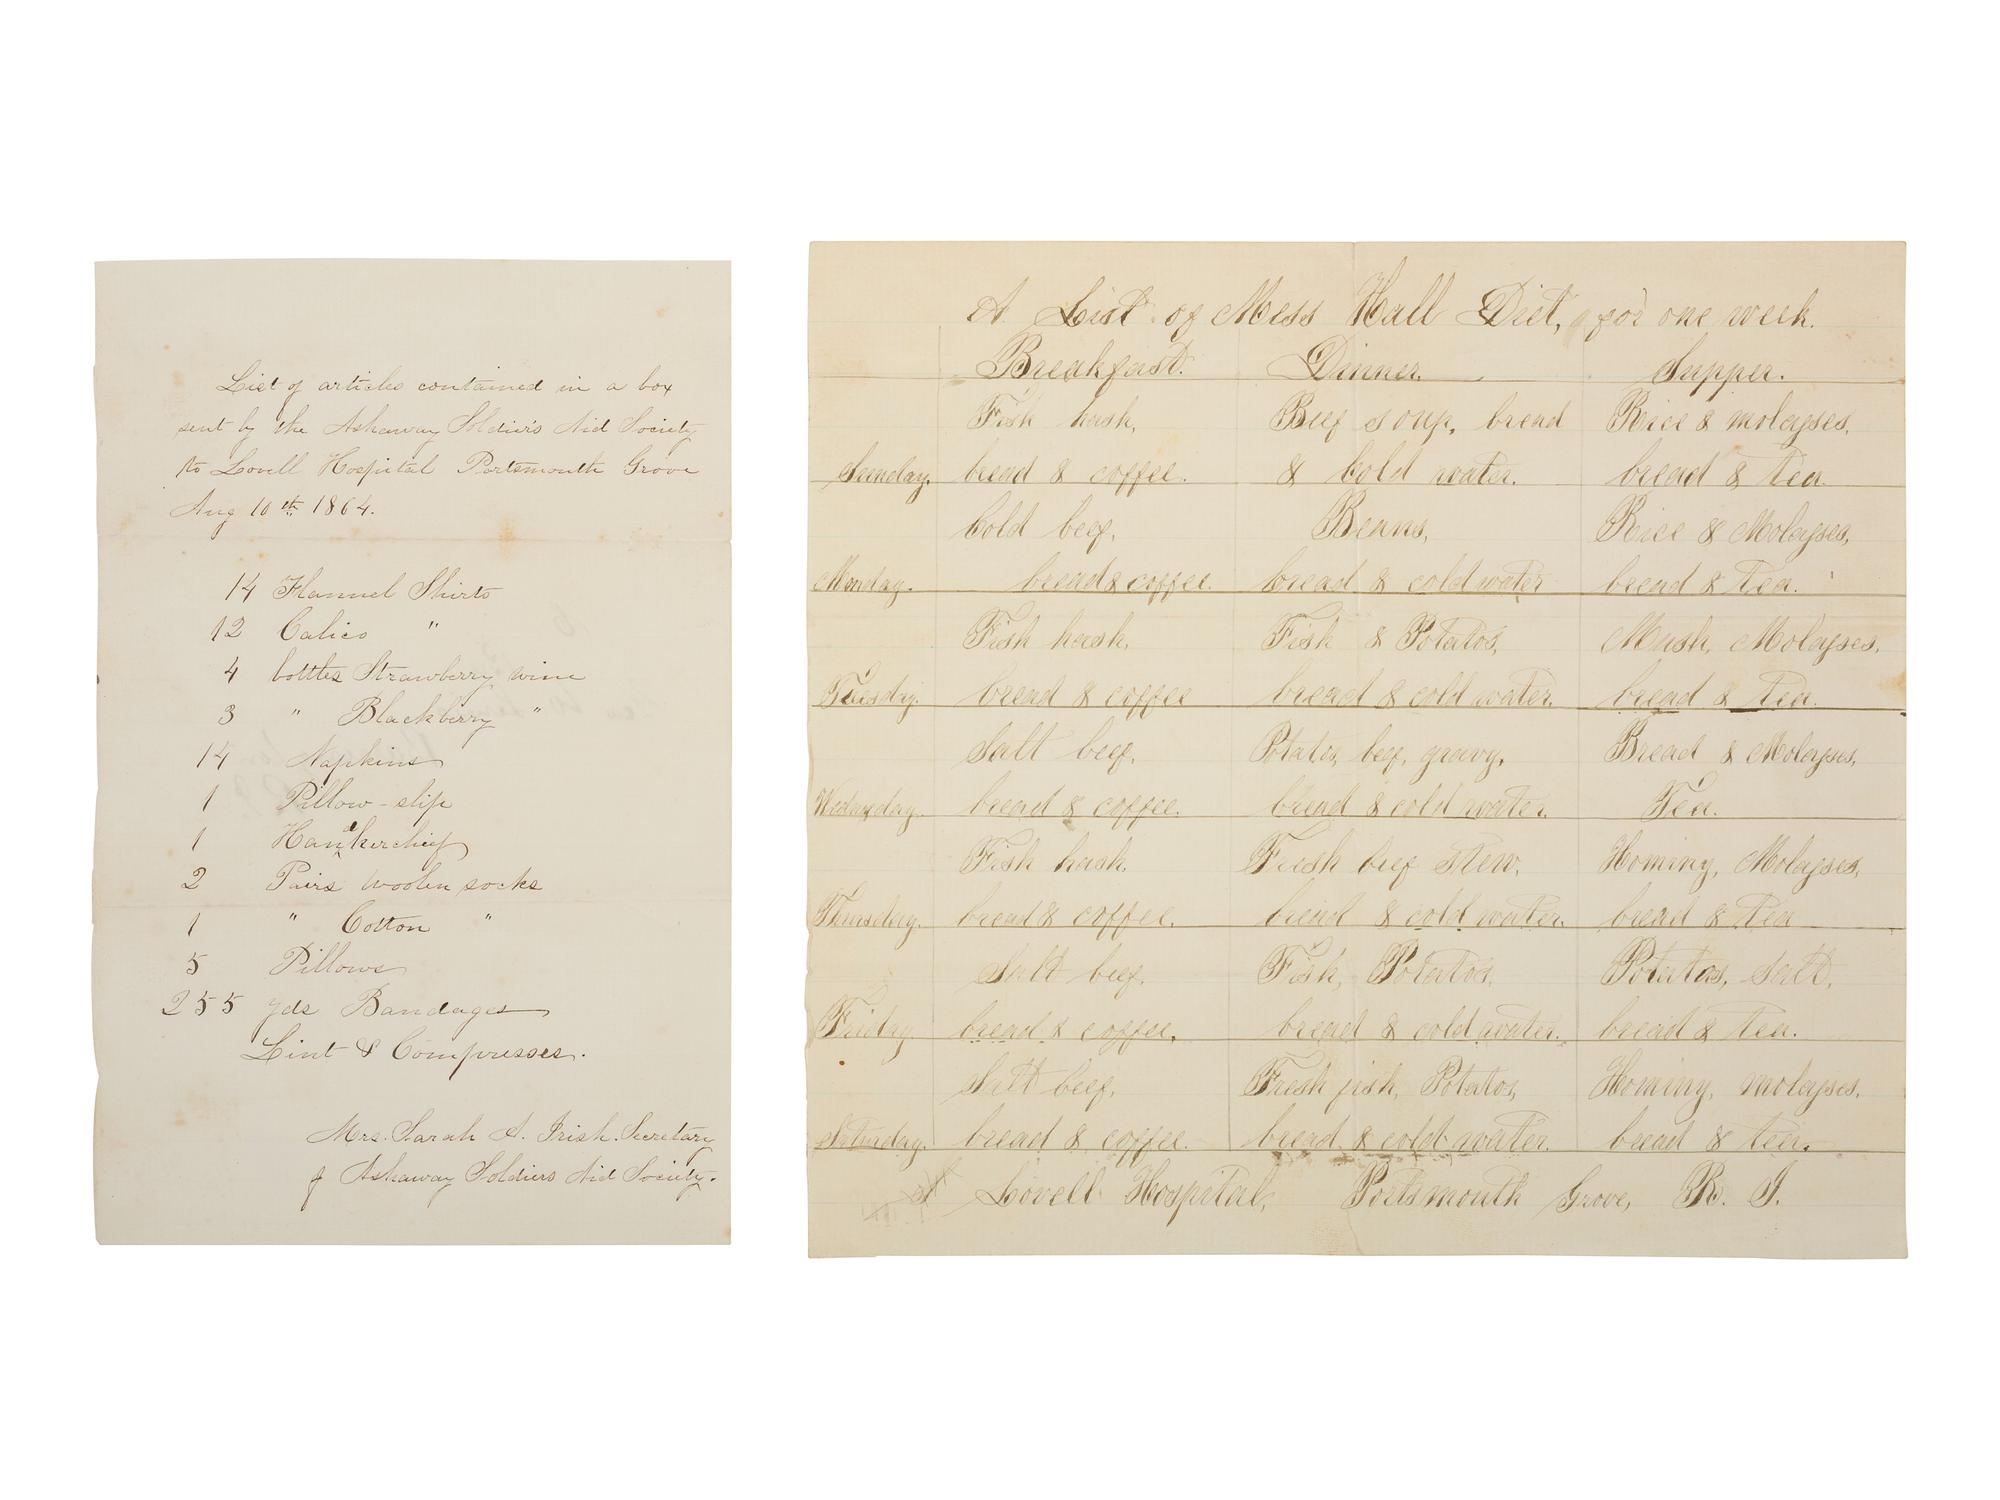 List of articles contained in a box
sent by the Ashaway Soldier's Aid Society
to Lovell Hospital Portsmouth Grove
Aug 10th 1864.
14 Flannel Shirts
12 Calico "
4 bottles Strawberry wine
3 " Blackberry "
14 Napkins
1 Pillow-slip
1 Handkerchief
2 Pairs woolen socks
1 " Cotton "
5 Pillows
255 yds Bandages
Lint & Compresses.
Mrs. Sarah A. Irish. Secretary
of Ashaway Soldiers Aid Society.
A List of Mess Hall Diet, for one week.
Breakfast. Dinner. Supper.
Fish hash, Beef soup, bread Rice & molasses,
Sunday. bread & coffee. & Cold water. bread & tea.
Cold beef, Beans, Rice & Molasses,
Monday. bread & coffee. bread & cold water bread & tea.
Fish hash, Fish & Potatos, Mush, Molasses,
Tuesday. bread & coffee bread & cold water. bread & tea.
Salt beef, Potatos, beef, gravy, Bread & Molasses,
Wednsday. bread & coffee. bread & cold water. Tea.
Fish hash, Fresh beef stew, Hominy, Molasses,
Thursday. bread & coffee. bread & cold water. bread & tea
Salt beef, Fish, Potatos, Potatos, Salt,
Friday. bread & coffee, bread & cold water. bread & tea.
Salt beef, Fresh fish, Potatos, Hominy, molasses,
Saturday. bread & coffee. bread & cold water. bread & tea.
Lovell Hospital, Portsmouth Grove, R. I.